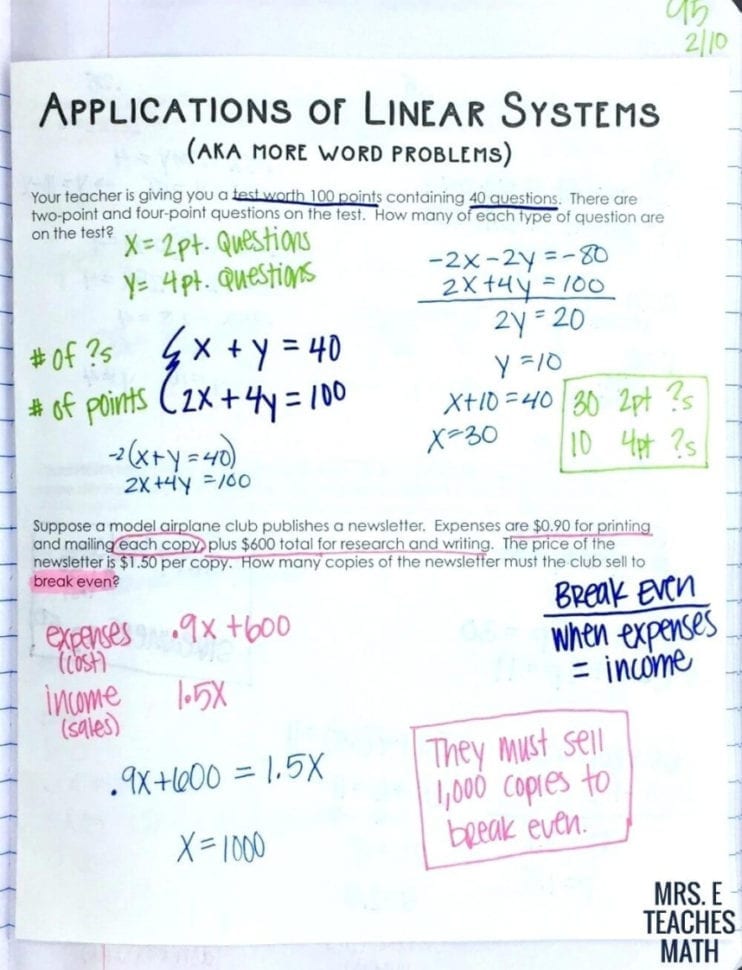 95
2/10
APPLICATIONS OF LINEAR SYSTEMS
(AKA MORE WORD PROBLEMS)
Your teacher is giving you a test worth 100 points containing 40 questions. There are
two-point and four-point questions on the test. How many of each type of question are
on the test?
X = 2pt. Questions
Y = 4pt. Questions
# of ?s
x + y = 40
# of points
2x + 4y = 100
-2(x+y=40)
2x+4y =100
-2x-2y =-80
2x+4y =100
2y = 20
y =10
x+10 =40
x=30
30 2pt ?s
10 4pt ?s
Suppose a model airplane club publishes a newsletter. Expenses are $0.90 for printing
and mailing each copy, plus $600 total for research and writing. The price of the
newsletter is $1.50 per copy. How many copies of the newsletter must the club sell to
break even?
Break Even
when expenses
= income
expenses .9x +600
(cost)
income 1.5x
(sales)
.9x+600 = 1.5x
x=1000
They must sell
1,000 copies to
break even.
MRS. E
TEACHES
MATH